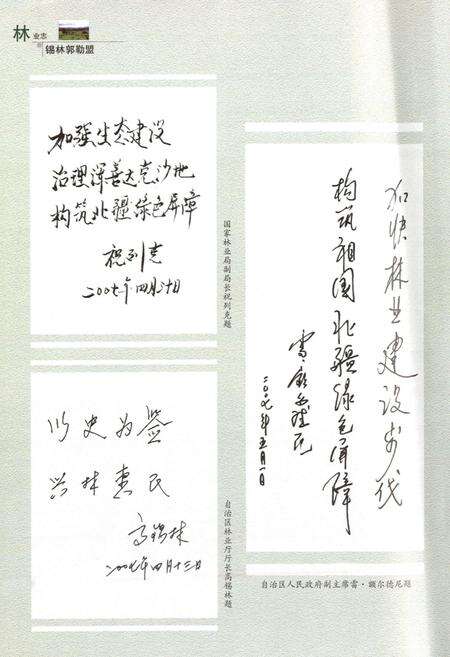 林业志
锡林郭勒盟
加强生态建设
治理浑善达克沙地
构筑北疆绿色屏障
祝列克
二〇〇七年四月廿日
国家林业局副局长祝列克题
以史为鉴
兴林惠民
高锡林
二〇〇七年四月十三日
自治区林业厅厅长高锡林题
加快林业建设步伐
构筑祖国北疆绿色屏障
雷·额尔德尼
二〇〇七年五月一日
自治区人民政府副主席雷·额尔德尼题